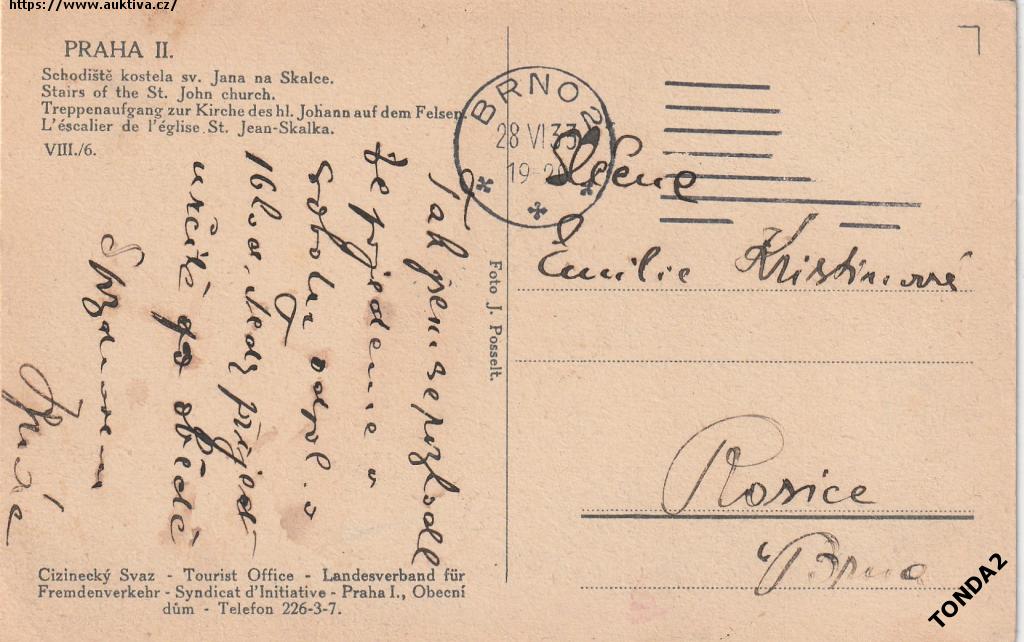 https://www.auktiva.cz/
PRAHA II.
Schodiště kostela sv. Jana na Skalce.
Stairs of the St. John church.
Treppenaufgang zur Kirche des hl. Johann auf dem Felsen.
L'éscalier de l'église St. Jean-Skalka.
VIII./6.
Tak jsem se rozhodl
že pojedeme v
sobotu odpol. v
16 hod. tedy přijeď
určitě po obědě
S pozdravem
BRNO 2
28 VI 33
19-20
Foto J. Posselt.
Slečna
Emilie Kristinová
Rosice
u Brna
Cizinecký Svaz - Tourist Office - Landesverband für
Fremdenverkehr - Syndicat d'Initiative - Praha I., Obecní
dům - Telefon 226-3-7.
TONDA2